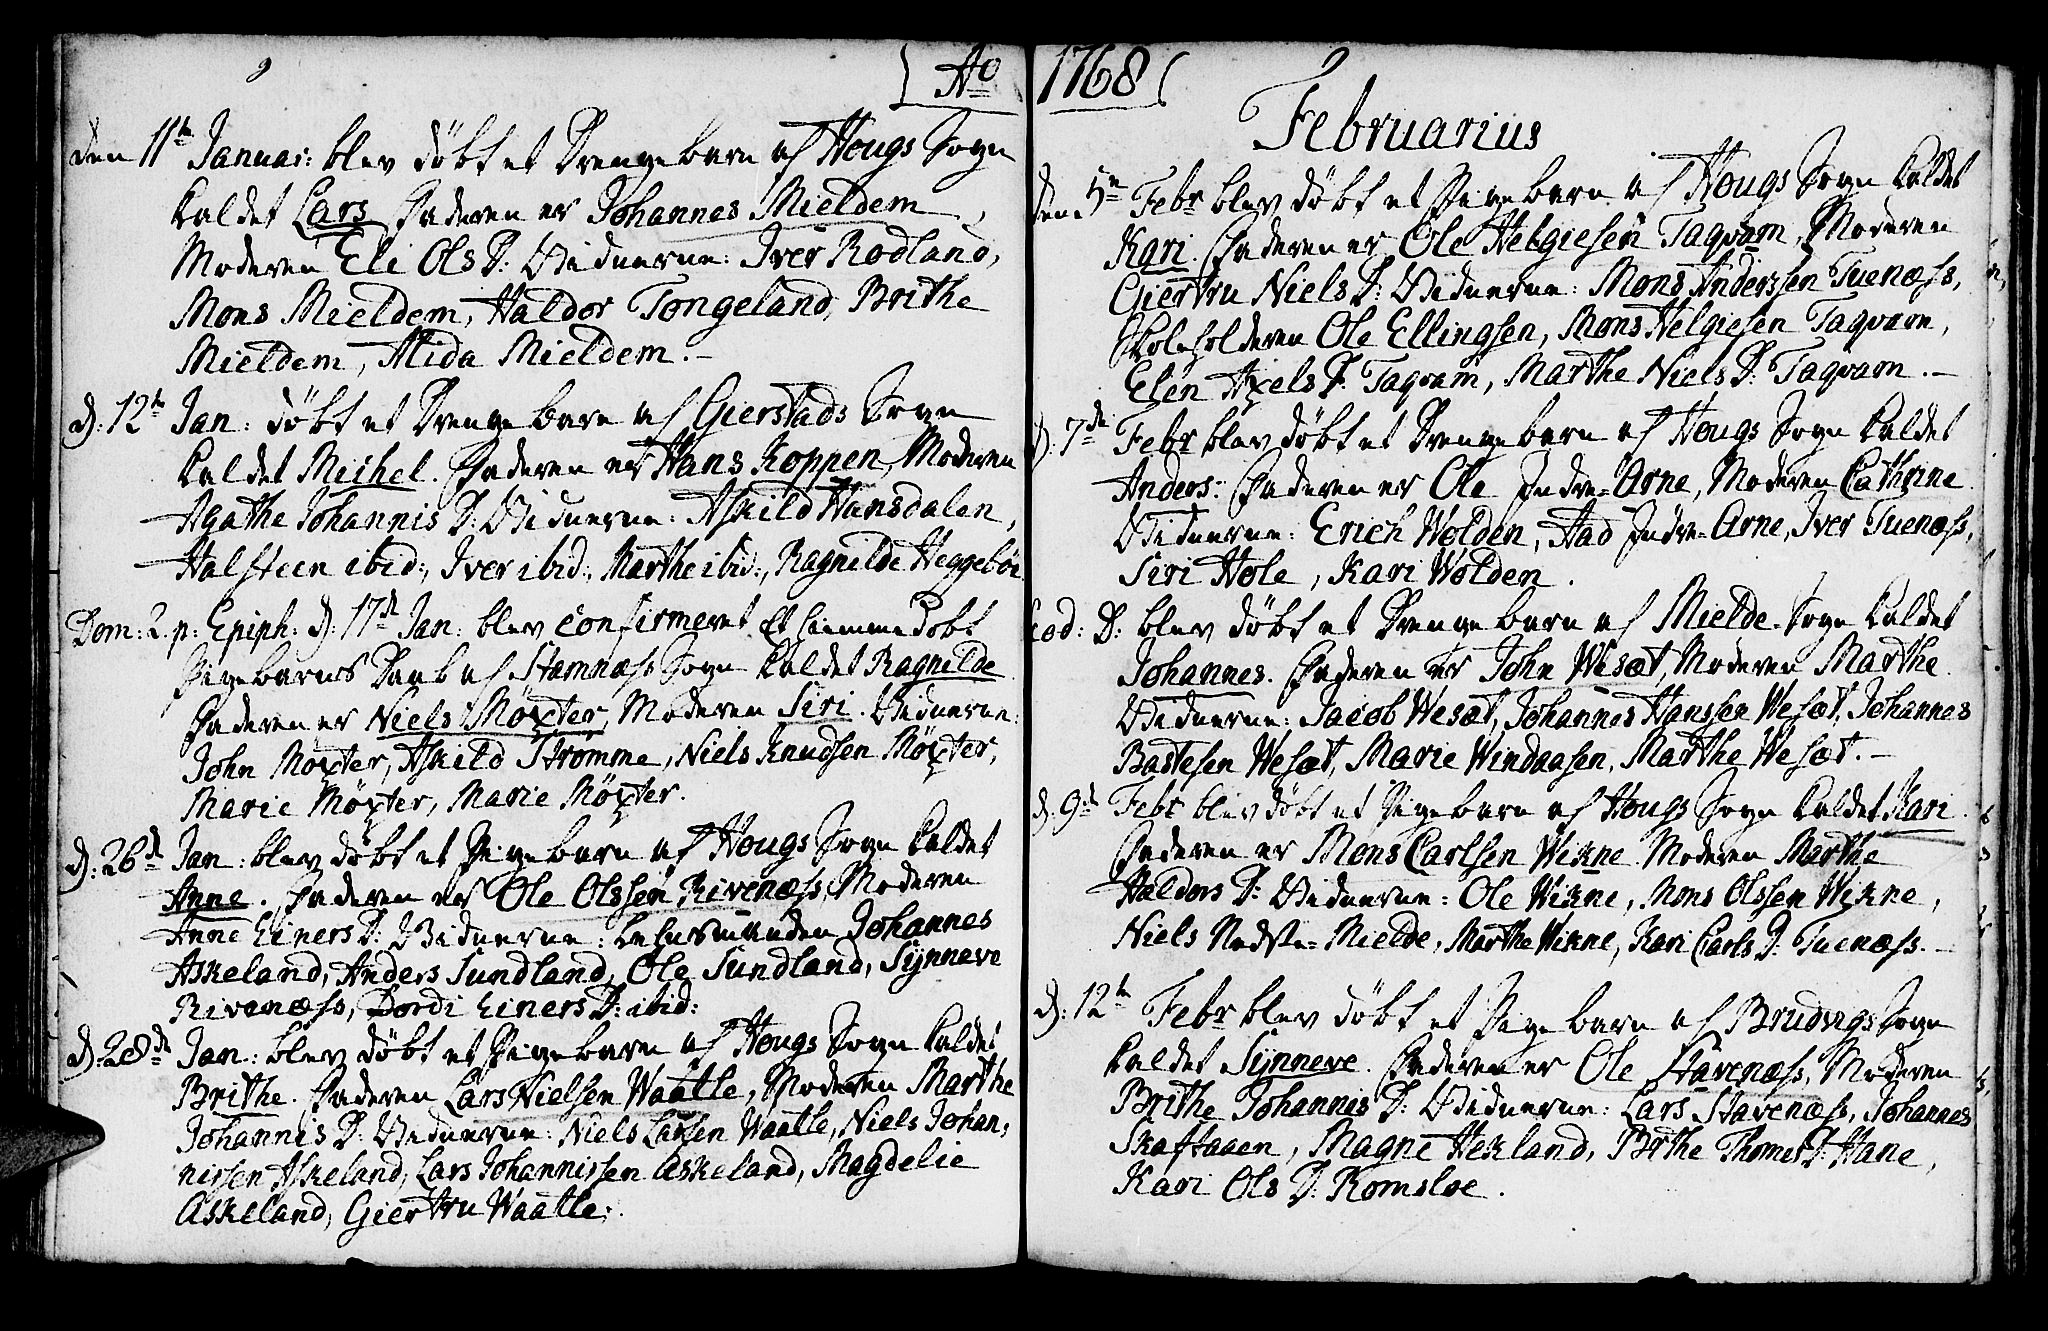 9
Ao 1768
9
den 11te Januar: blev døbt et Drengebarn af Hougs Sogn
kaldet Lars Faderen er Johannes Mieldem,
Moderen Eli Ols D: Vidnerne: Iver Rødland,
Mons Mieldem, Haldor Tongeland, Brithe
Mieldem, Alida Mieldem.-
d: 12te Jan: døbt et Drenge barn af Gierstads Sogn
kaldet Meihel. Faderen er Hans Koppen, Moderen
Agathe Johannis D: Vidnerne: Askild Hansdalen,
Halsteen ibid:, Iver ibid:, Marthe ibid:, Ragnilde Heggebøe
Dom: 2. p: Epiph: d: 17de Jan: blev confirmeret Et hiemmedøbt
Pigebarns Daab af Stamnæss Sogn kaldet Ragnilde
Faderen er Niels Møxter, Moderen Siri. Vidnerne:
John Møxter, Askild Strømme, Niels Knudsen Møxter,
Marie Møxter, Marie Møxter.
d: 26de Jan: blev døbt et Pigebarn af Hougs Sogn kaldet
Anne. Faderen er Ole Olssen Rivenæss, Moderen
Anne Einers D: Vidnerne: Lehnsmanden Johannes
Askeland, Anders Sundland, Ole Sundland, Synneve
Rivenæss, Dordi Einers D: ibid:
d: 28de Jan: blev døbt et Pigebarn af Hougs Sogn kaldet
Brithe. Faderen Lars Nielsen Waatle, Moderen Marthe
Johannis D: Vidnerne: Niels Larsen Waatle, Niels Johan,
nissen Askeland, Lars Johannissen Askeland, Magdelie
Askeland, Giertru Waatle:
Februarius
den 5te Febr blev døbt et Pigebarn af Hougs Sogn kaldet
Kari. Faderen er Ole Helgiesen Taqvam, Moderen
Giertru Niels D: Vidnerne: Mons Anderssen Tuenæss,
Skoleholderen Ole Ellingsen, Mons Helgiesen Taqvam,
Elen Axels D: Taqvam, Marthe Niels D: Taqvam.-
d: 7de Febr blev døbt et Drengebarn af Hougs Sogn kaldet
Anders: Faderen er Ole Indre=Arne, Moderen Cathrine
Vidnerne: Erich Wolden, Aad Indre=Arne, Iver Tuenæss,
Siri Hole, Kari Wolden.
Eod: D: blev døbt et Drengebarn af Mielde Sogn kaldet
Johannes. Faderen er John Wesæt, Moderen Marthe
Vidnerne: Jacob Wesæt, Johannes Hanssen Wesæt, Johannes
Bastesen Wesæt, Marie Windaasen, Marthe Wesæt.-
d. 9de Febr blev døbt et Pige barn af Hougs Sogn kaldet Kari.
Faderen er Mons Carlsen Wikne Moderen Marthe
Haldors D: Vidnerne: Ole Wikne, Mons Olssen Wikne,
Niels Nedste=Mielde, Marthe Wikne, Kari Carls D: Tuenæss.-
d: 12te Febr blev døbt et Pige barn af Brudvigs Sogn
kaldet Synneve. Faderen er Ole Stavenæss, Moderen
Brithe Johannis D: Vidnerne: Lars Stavenæss, Johannes
Skaftaaen, Magne Hekland, Brithe Thomes D: Hane,
Kari Ols D: Romsloe.